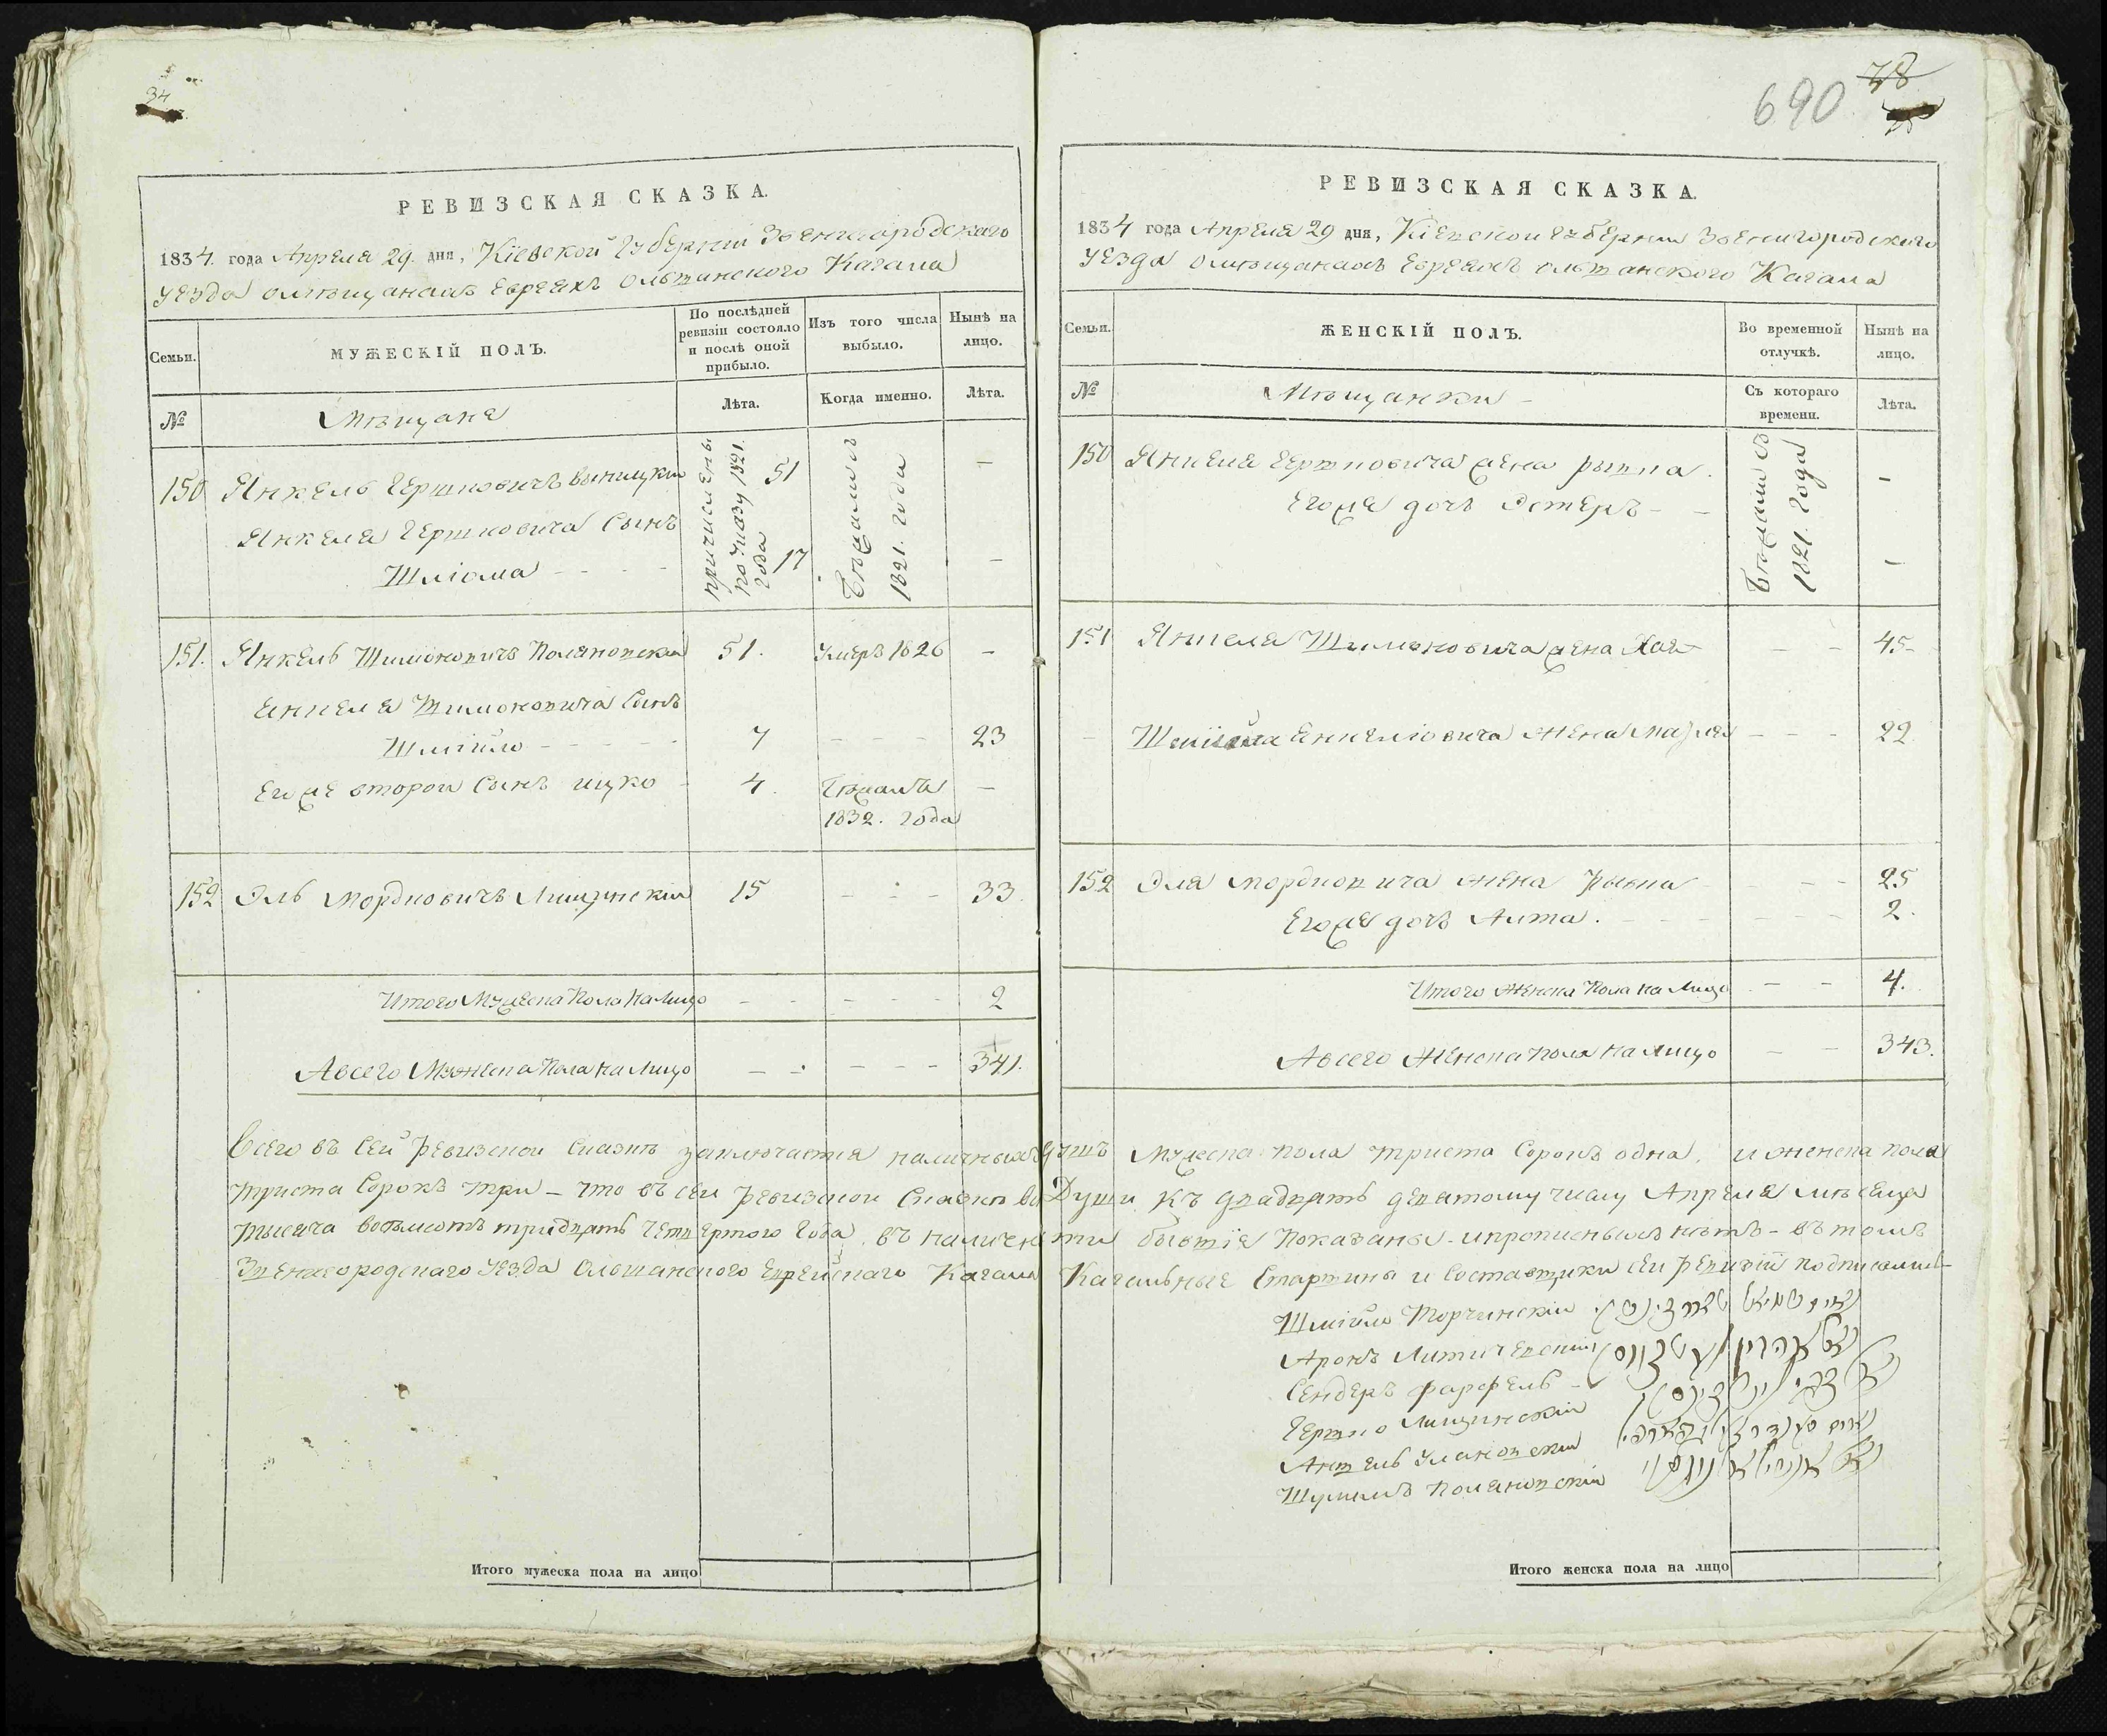 34
РЕВИЗСКАЯ СКАЗКА.
1834. года Апреля 29. дня, Кіевской Губерніи Звенигородскаго
уезда омѣщанахъ Евреяхъ Ольшанского Кагала
Семьи.
МУЖЕСКІЙ ПОЛЪ.
По послѣдней ревизіи состояло и послѣ оной прибыло.
Изъ того числа выбыло.
Нынѣ на лицо.
№
Мѣщане
Лѣта.
Когда именно.
Лѣта.
150 Янкель Гершковичъ Виницкій 51 —
Янкеля Гершковича Сынъ
Шліома - - - - 17 —
причислены
по указу 1821.
года
Бѣжали въ
1821. года
151. Янкель Шимоновичъ Поляновскій 51. Умеръ 1826 —
Янкеля Шимоновича Сынъ
Шміило - - - - - 7 - - - 23
Егоже второй Сынъ ицко - 4. Бѣжалъ —
1832. года
152 Эль Мордковичъ Лищинскій 15 - - - 33.
Итого Мужеска Пола На Лицо - - - - - - 2
А всего Мужеска Пола На Лицо - - - - - 341.
Итого мужеска пола на лицо
690 78
РЕВИЗСКАЯ СКАЗКА.
1834 года Апреля 29 дня, Кіевской Губерніи Звенигородскаго
уезда омѣщанахъ Евреяхъ ольшанского Кагала
Семьи.
ЖЕНСКІЙ ПОЛЪ.
Во временной отлучкѣ.
Нынѣ на лицо.
№
Мѣщанки -
Съ котораго времени.
Лѣта.
150 Янкеля Гершковича жена рыпка. -
Егоже дочь Эстеръ - - -
Бѣжали въ
1821. года
151 Янкеля Шимоновича жена Хая - - 45-
- Шміила Янкеліовича жена Маря - - - 22
152 Эля Мордковича жена Рывка - - - 25
Егоже дочь Аита. - - - - - - 2.
Итого женска Пола на Лицо - - 4.
А всего Женска пола На лицо - - 343.
Всего въ сей ревизской сказкѣ заключается наличныхъ душъ Мужеска пола триста Сорокъ одна, и женска пола
триста Сорокъ три - что въ сей ревизской Сказкѣ все Души къ двадцать девятому числу Апреля мѣсяца
тысяча восьмсотъ тридцать четвертого Года, въ наличности бывшія Показаны - ипрописныхъ нѣтъ - въ томъ
Звенигородскаго уезда Ольшанского Еврейскаго Кагала Кагальные Старшины и Составщики сей ревизіи подписались -
Шміило Торчинскій
Аронъ
Сендеръ фарфель -
Гершко Лищинскій
Аншель Улановскій
Шулимъ Поляновскій
Итого женска пола на лицо